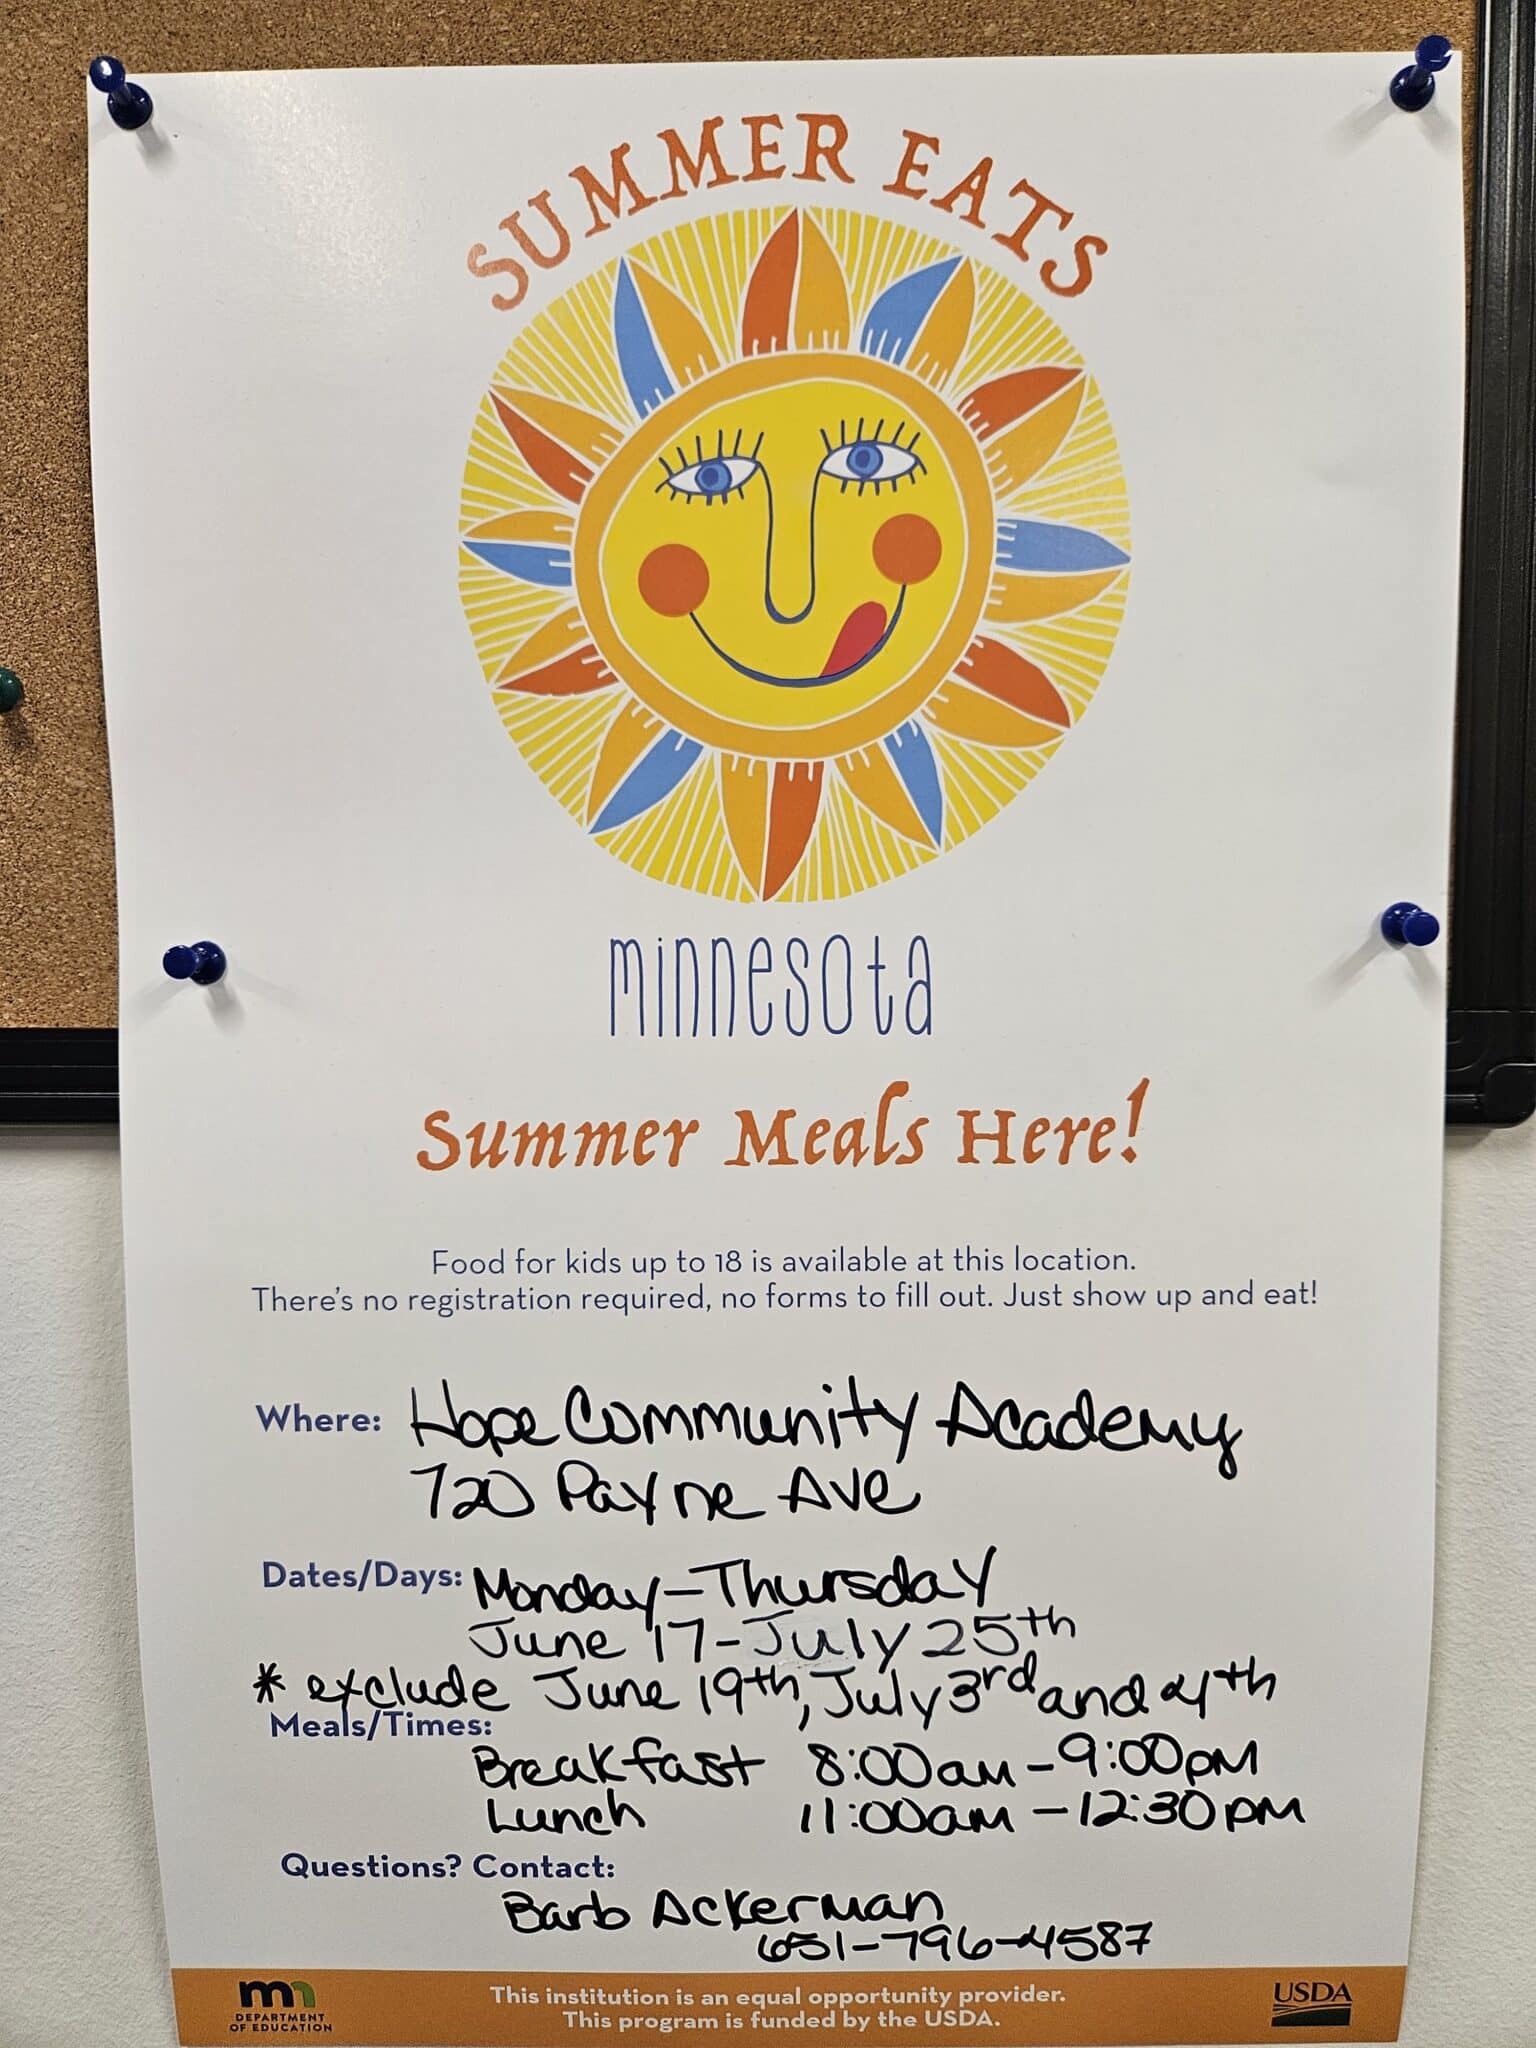 SUMMER EATS
minnesota
Summer Meals Here!
Food for kids up to 18 is available at this location.
There's no registration required, no forms to fill out. Just show up and eat!
Where: Hope Community Academy
720 Payne Ave
Dates/Days: Monday-Thursday
June 17-July 25th
* exclude June 19th, July 3rd and 4th
Meals/Times:
Breakfast 8:00am-9:00pm
Lunch 11:00am-12:30pm
Questions? Contact:
Barb Ackerman
651-796-4587
mn
DEPARTMENT
OF EDUCATION
This institution is an equal opportunity provider.
This program is funded by the USDA.
USDA